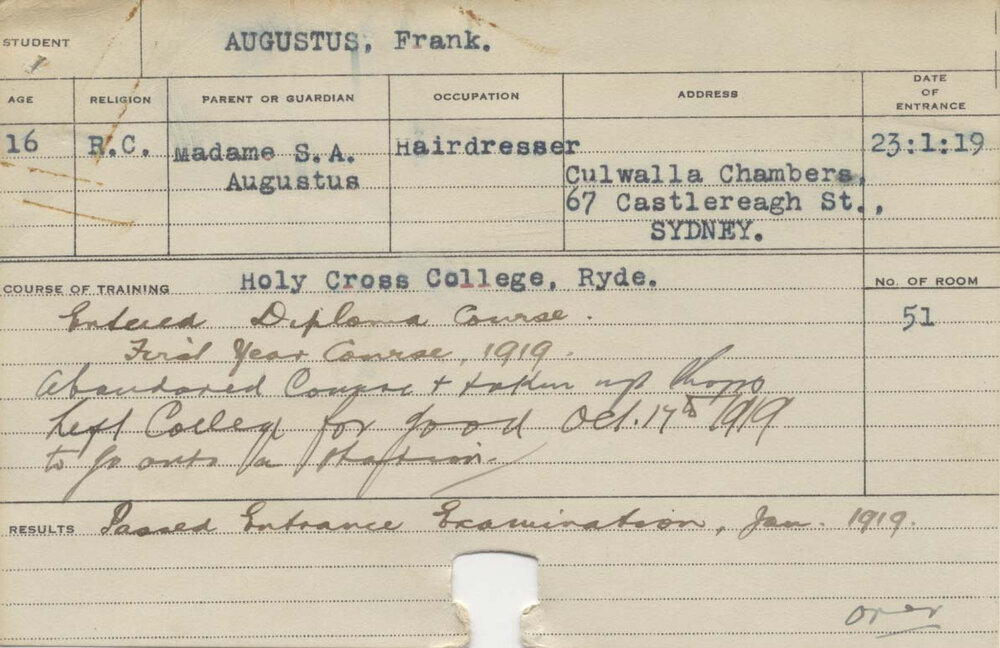 STUDENT AUGUSTUS, Frank.
AGE RELIGION PARENT OR GUARDIAN OCCUPATION ADDRESS DATE OF ENTRANCE
16 R.C. Madame S.A. Augustus Hairdresser Culwalla Chambers, 67 Castlereagh St., SYDNEY. 23:1:19
COURSE OF TRAINING Holy Cross College, Ryde. No. OF ROOM
51
Entered Diploma Course.
First Year Course, 1919.
Abandoned Course & taken up
Left College for good Oct. 17th 1919
to go onto a station.
RESULTS Passed Entrance Examination, Jan. 1919.
over